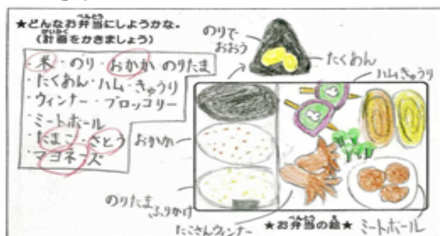 ★どんなお弁当にしようかな。
べんとう
(計画をかきましょう)
けいかく
米・のり・おかか のりたま
・たくあん・ハム・きゅうり
・ウィンナー・ブロッコリー
・ミートボール
・たまご・さとう
・マヨネーズ
のりで
おおう
たくあん
ハムきゅうり
おかか
のりたま
ふりかけ
たこさんウィンナー
★お弁当の絵★
べんとう
え
ミートボール